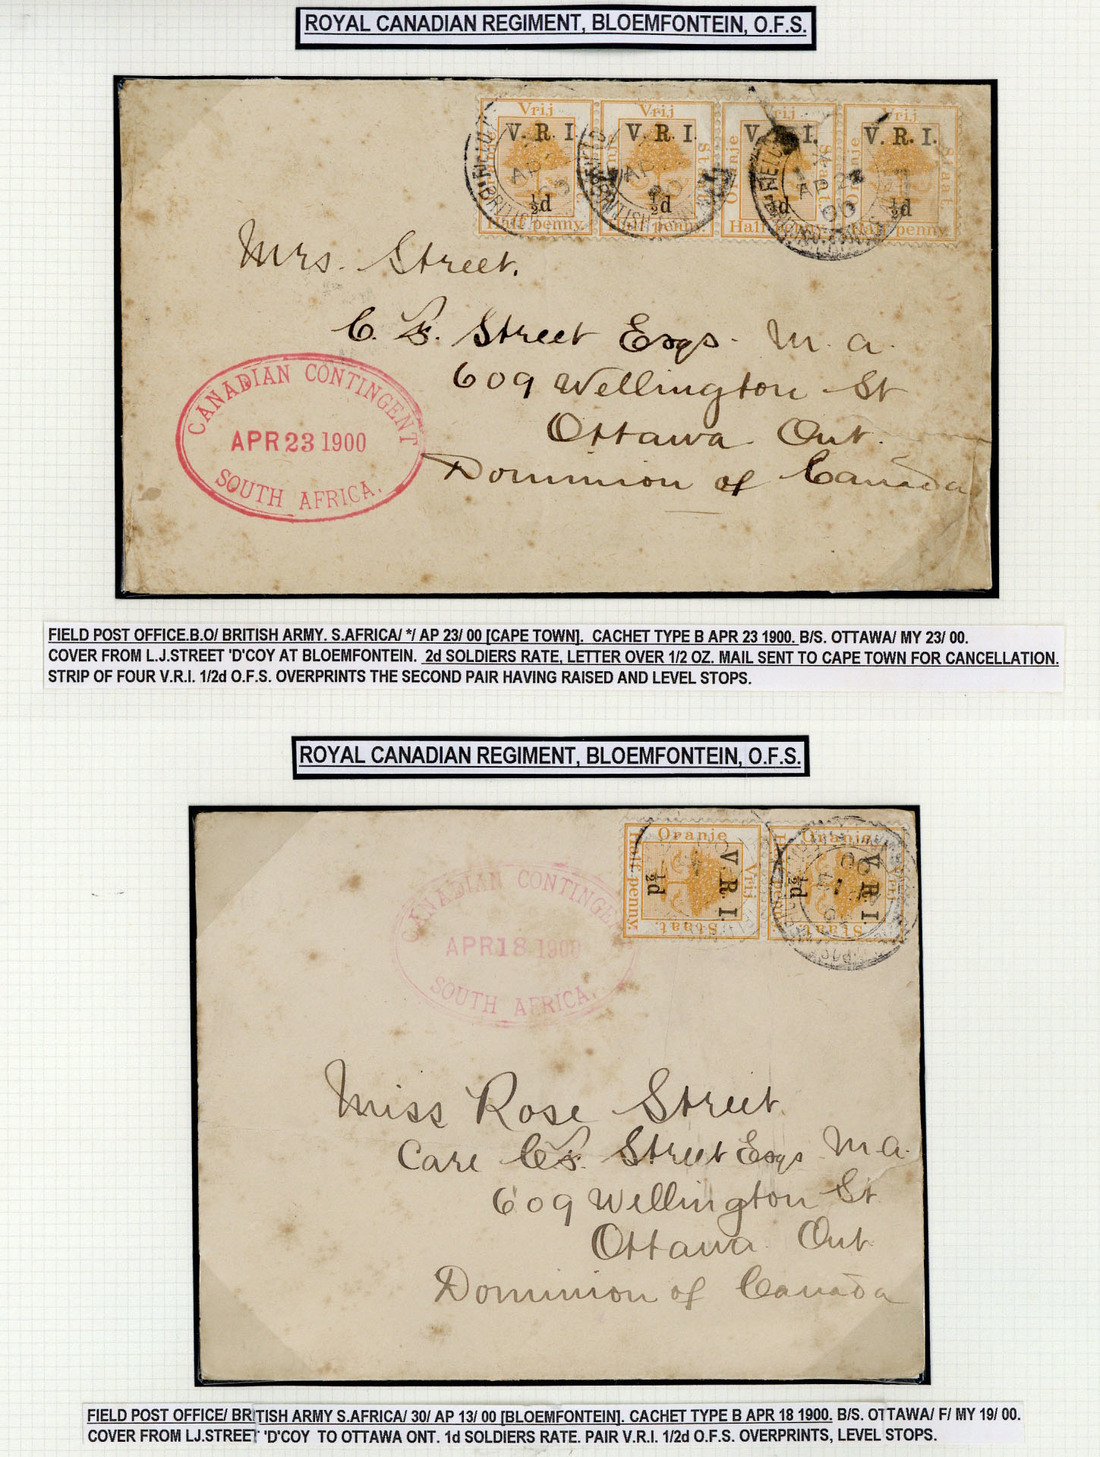 ROYAL CANADIAN REGIMENT, BLOEMFONTEIN, O.F.S.
Vrij Vrij Vrij Vrij
V. R. I. V. R. I. V. R. I. V. R. I.
½d ½d ½d ½d
Half penny. Half penny. Half penny. Half penny.
AP 23
00
Mrs. Street.
C. F. Street Esqs. M. A.
609 Wellington St
Ottawa Ont.
Dominion of Canada
CANADIAN CONTINGENT
APR 23 1900
SOUTH AFRICA.
FIELD POST OFFICE.B.O/ BRITISH ARMY. S.AFRICA/ */ AP 23/ 00 [CAPE TOWN]. CACHET TYPE B APR 23 1900. B/S. OTTAWA/ MY 23/ 00.
COVER FROM L.J.STREET 'D'COY AT BLOEMFONTEIN. 2d SOLDIERS RATE, LETTER OVER 1/2 OZ. MAIL SENT TO CAPE TOWN FOR CANCELLATION.
STRIP OF FOUR V.R.I. 1/2d O.F.S. OVERPRINTS THE SECOND PAIR HAVING RAISED AND LEVEL STOPS.
ROYAL CANADIAN REGIMENT, BLOEMFONTEIN, O.F.S.
Oranje Oranje
Half penny
Vrij
Staat Staat
V. R. I. V. R. I.
½d ½d
CANADIAN CONTINGENT
APR 18 1900
SOUTH AFRICA.
Miss Rose Street
Care C. F. Street Esqs M A.
609 Wellington St
Ottawa Ont
Dominion of Canada
FIELD POST OFFICE/ BRITISH ARMY S.AFRICA/ 30/ AP 13/ 00 [BLOEMFONTEIN]. CACHET TYPE B APR 18 1900. B/S. OTTAWA/ F/ MY 19/ 00.
COVER FROM LJ.STREET 'D'COY TO OTTAWA ONT. 1d SOLDIERS RATE. PAIR V.R.I. 1/2d O.F.S. OVERPRINTS, LEVEL STOPS.